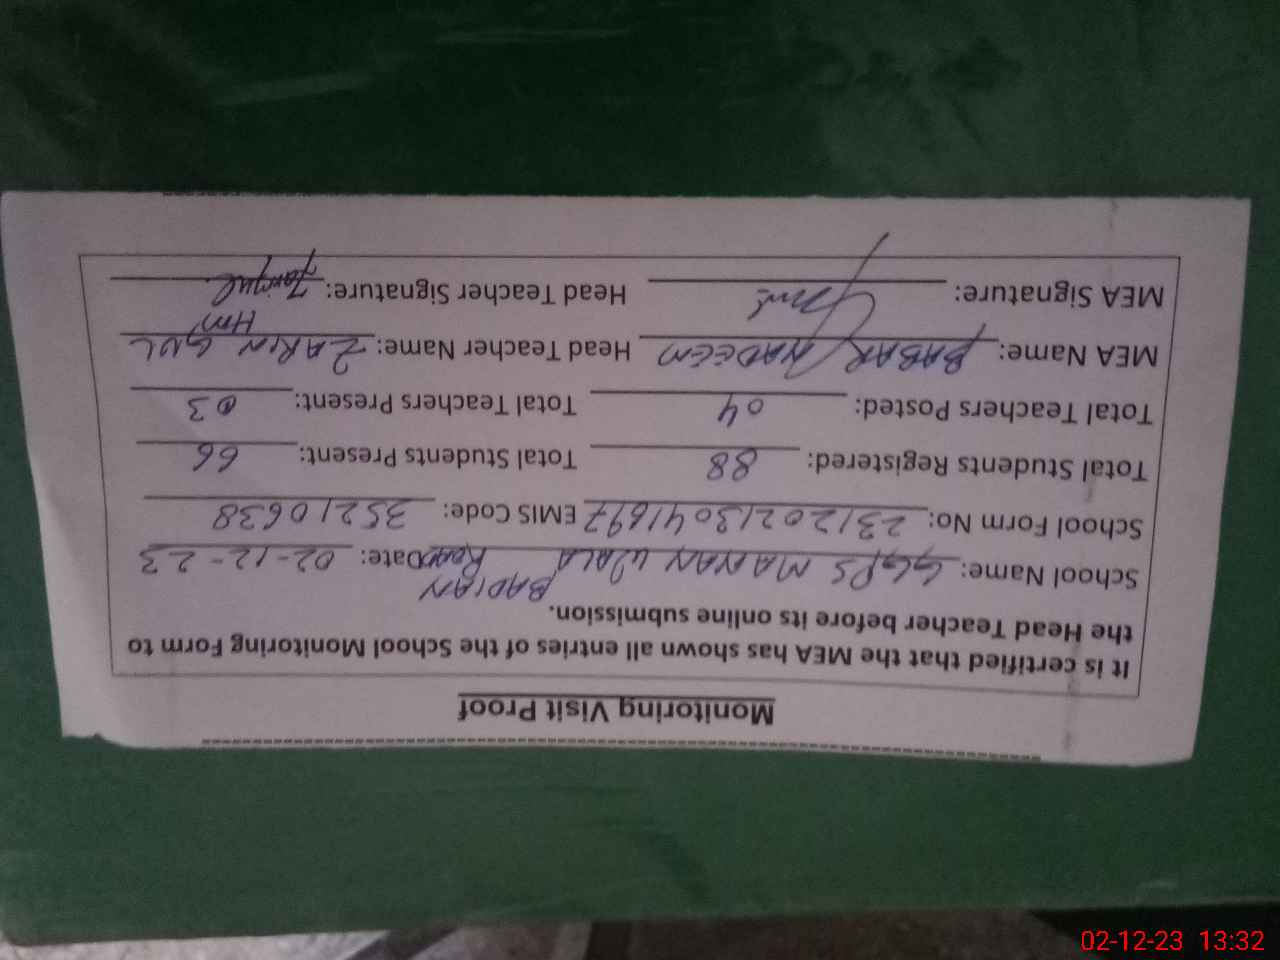 Monitoring Visit Proof
It is certified that the MEA has shown all entries of the School Monitoring Form to
the Head Teacher before its online submission.
School Name: GGPS MANAN WALA BADIAN ROAD Date: 02-12-23
School Form No: 2312021304 1697 EMIS Code: 35210638
Total Students Registered: 88 Total Students Present: 66
Total Teachers Posted: 04 Total Teachers Present: 03
MEA Name: BABAR NADEEM Head Teacher Name: ZARIN GUL
HM
MEA Signature: Head Teacher Signature:
02-12-23 13:32